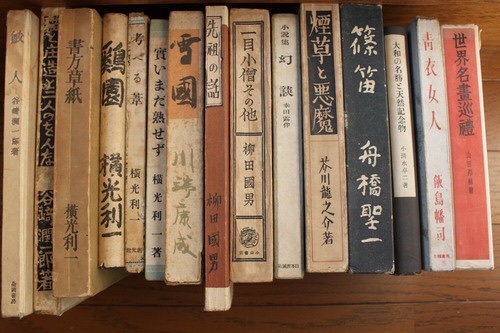 人
谷崎潤一郎著
谷崎潤一郎著
書方草紙
横光利一
雞園
横光利一
考へる葦
横光利一
實いまだ熟せず
横光利一著
雪國
川端康成
先祖の話
柳田國男
一目小僧その他
柳田國男
小説集
幻談
幸田露伴作
煙草と悪魔
芥川龍之介著
篠笛
舟橋聖一
大和の名勝と天然記念物
青衣女人
飯島幡司
世界名畫巡禮